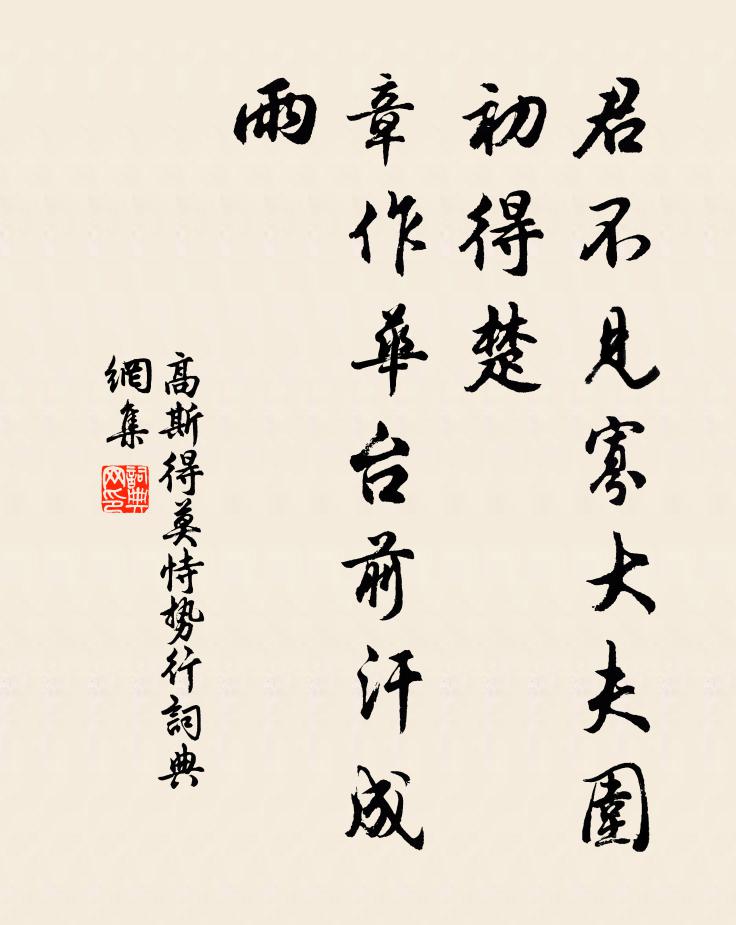 君不見寡大夫圍
初得楚
章作華台前汗成
雨
高斯得莫恃势行詞典
網集
詞典
网印